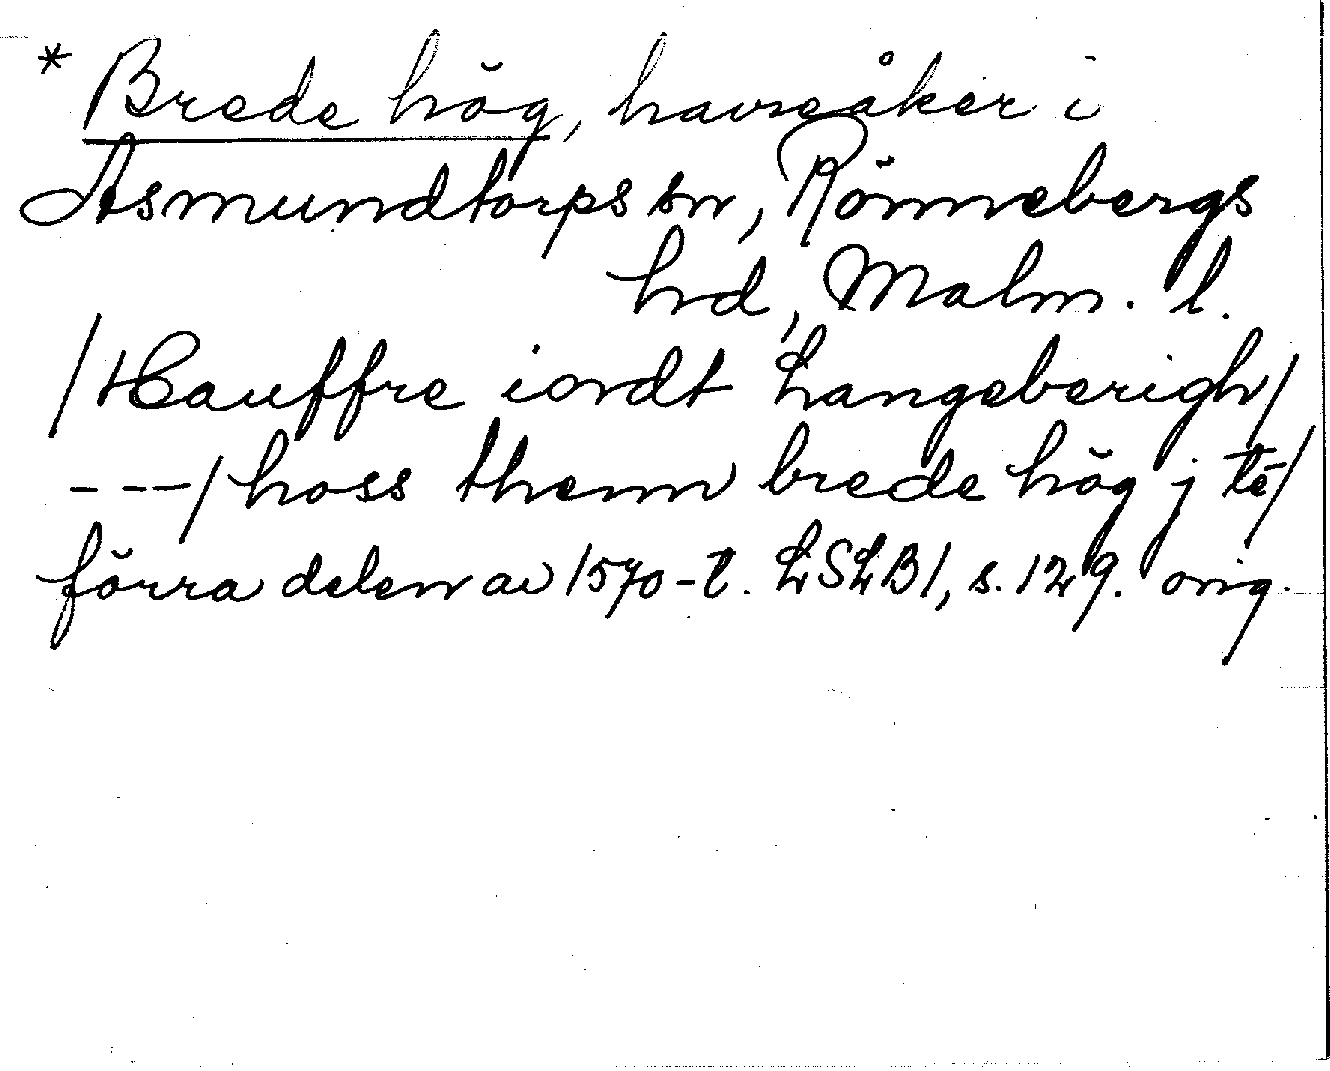 * Brede hög, havreåker i
Asmundtorps sn, Rönnebergs
hd, Malm. l.
/Hauffre iordt Langeberigh/
---/ hoss thenn brede hög j té/
förra delen av 1570-t. LSLB1, s. 129. orig.